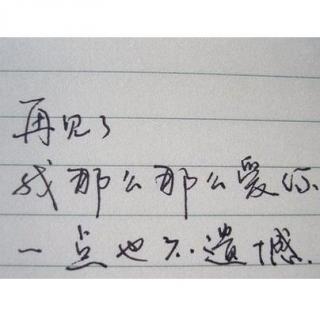 再见了
我那么那么爱你
一点也不遗憾.